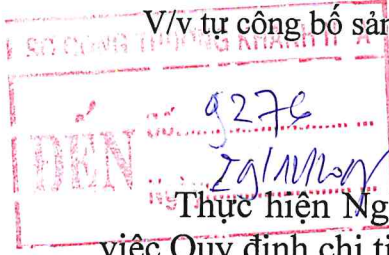 V/v tự công bố sản
SỞ CÔNG THƯƠNG KHÁNH H A
ĐẾN
Số: 9276
Ngày
Thực hiện Ng
việc Quy định chi ti